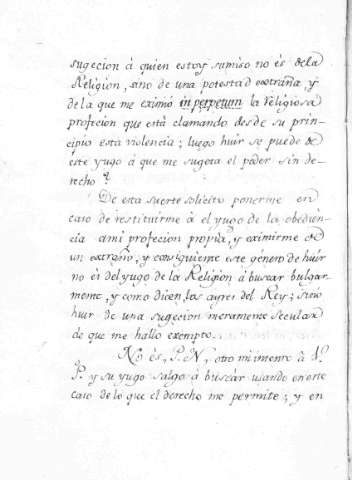 sugecion á quien estoy sumiso no és dela
Religion, sino de una potestad extraña, y
de la que me eximió in perpetum la religiosa
profecion que está clamando desde su prin-
cipio esta violencia; luego huír se puede de
este yugo á que me sugeta el poder sin de-
recho?
De esta suerte solicito ponerme en
caso de restituírme à el yugo de la obedien-
cia ami profecion propria, y eximirme de
un extraño, y consiguiente este género de huír
no és del yugo de la Religion á buscar bulgar-
mente, y como dicen, los ayres del Rey; sino
huír de una sugecion meramente secular
de que me hallo exempto.
No és, P. N., otro mi intento à V.
P. y su yugo salgo á buscár usando en este
caso de lo que el derecho me permite; y en